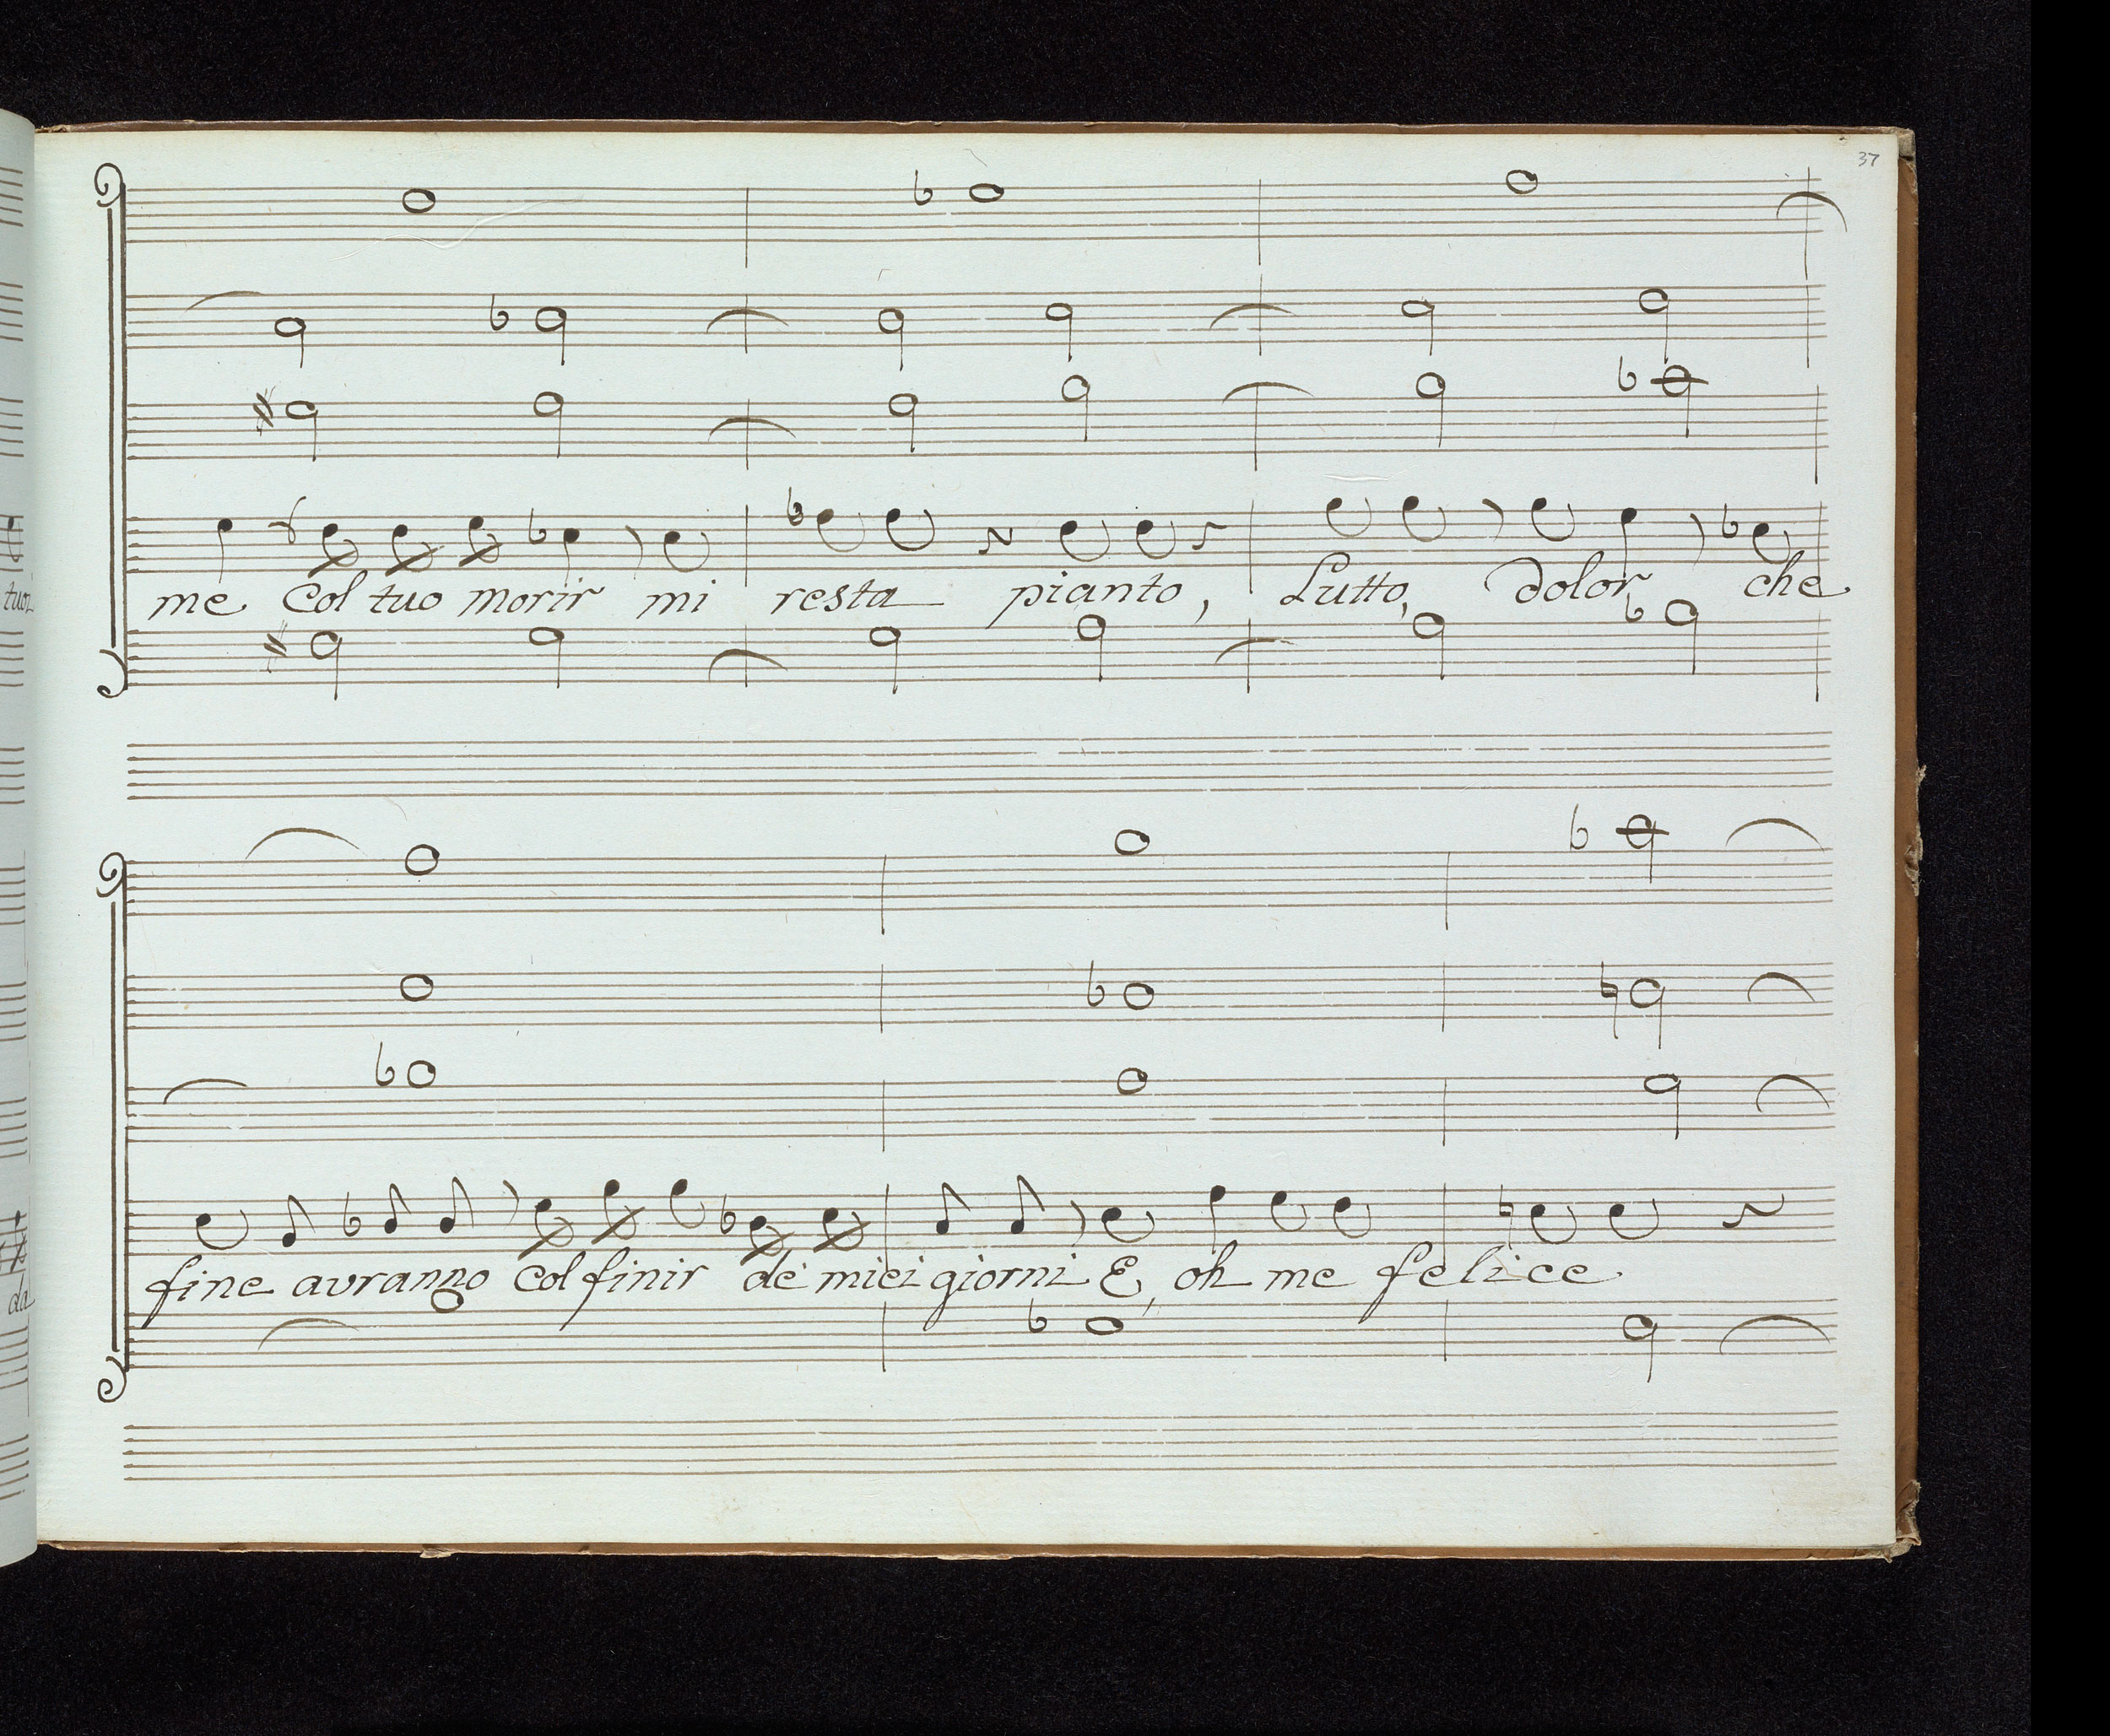 37
tuoi
me Col tuo morir mi resta pianto, Lutto, Dolor che
da
fine avranno Col finir dè miei giorni E, oh me felice